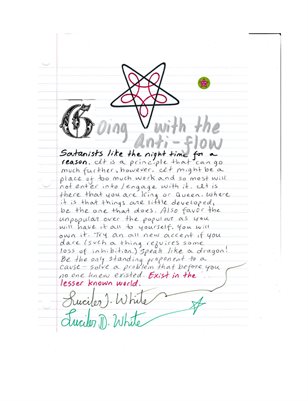 Going with the
anti-flow
Satanists like the night time for a
reason. It is a principle that can go
much further, however. It might be a
place of too much work and so most will
not enter into/engage with it. It is
there that you are King or Queen. Where
it is that things are little developed,
be the one that does. Also favor the
unpopular over the popular as you
will have it all to yourself. You will
own it. Try an all new accent if you
dare (such a thing requires some
loss of inhibition.) Speak like a dragon!
Be the only standing proponent to a
cause - solve a problem that before you
no one knew existed. Exist in the
lesser known world.
Lucifer J. White
Lucifer D. White